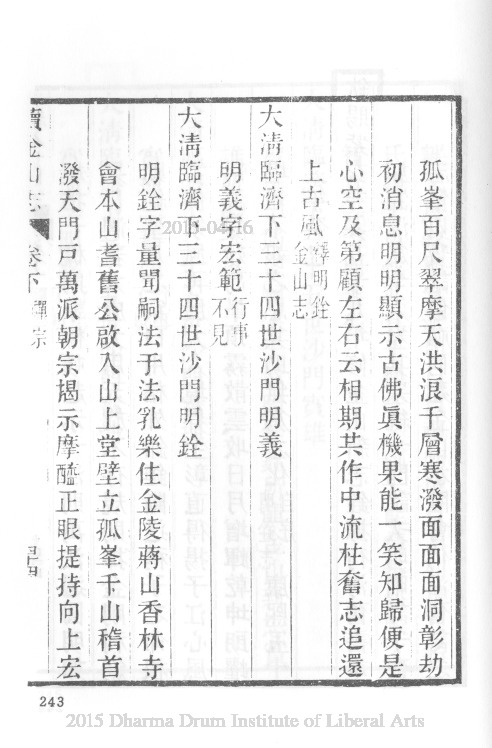 孤峯百尺翠摩天洪浪千層寒潑面面面洞彰劫
初消息明明顯示古佛眞機果能一笑知歸便是
心空及第顧左右云相期共作中流柱奮志追還
上古風釋明銓金山志
大淸臨濟下三十四世沙門明義
明義字宏範行事不見
大淸臨濟下三十四世沙門明銓
明銓字量聞嗣法于法乳樂住金陵蔣山香林寺
會本山耆舊公啟入山上堂壁立孤峯千山稽首
潑天門戸萬派朝宗揭示摩醯正眼提持向上宏
續金山志 卷下 禪宗
2015-04-16
243
2015 Dharma Drum Institute of Liberal Arts